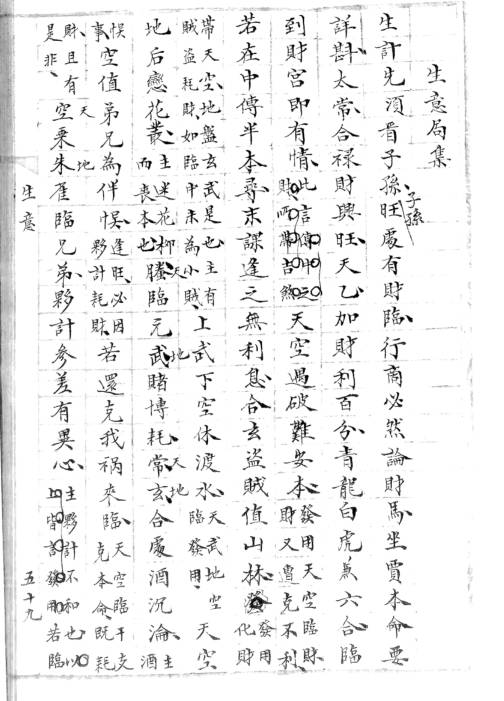 生意局集
生計先須看子孫旺處有財臨行商必然論財馬坐賈本命要
子孫
詳斟太常合祿財興旺天乙加財利百分青龍白虎兼六合臨
到財宮即有情此言傳中之財所帶吉煞天空遇破難安本發用天空臨財財又遭克不利
若在中傳半本尋末課逢之無利息合玄盜賊值山林發用化財
帶天空地盤玄武是也主有賊盜耗財如臨中末為小賊上武下空休渡水天武地空臨發用天空
地后戀花叢主迷花柳而喪本也天螣臨元武地賭博耗常天玄地合處酒沉淪主酒
悞事空值弟兄為伴悞逢旺必因夥計耗財若還克我禍來臨天空臨干支克本命既耗
財且有是非天空乘朱地雀臨兄弟夥計參差有異心主夥計不和也以上皆言發用若臨
生意
五十九